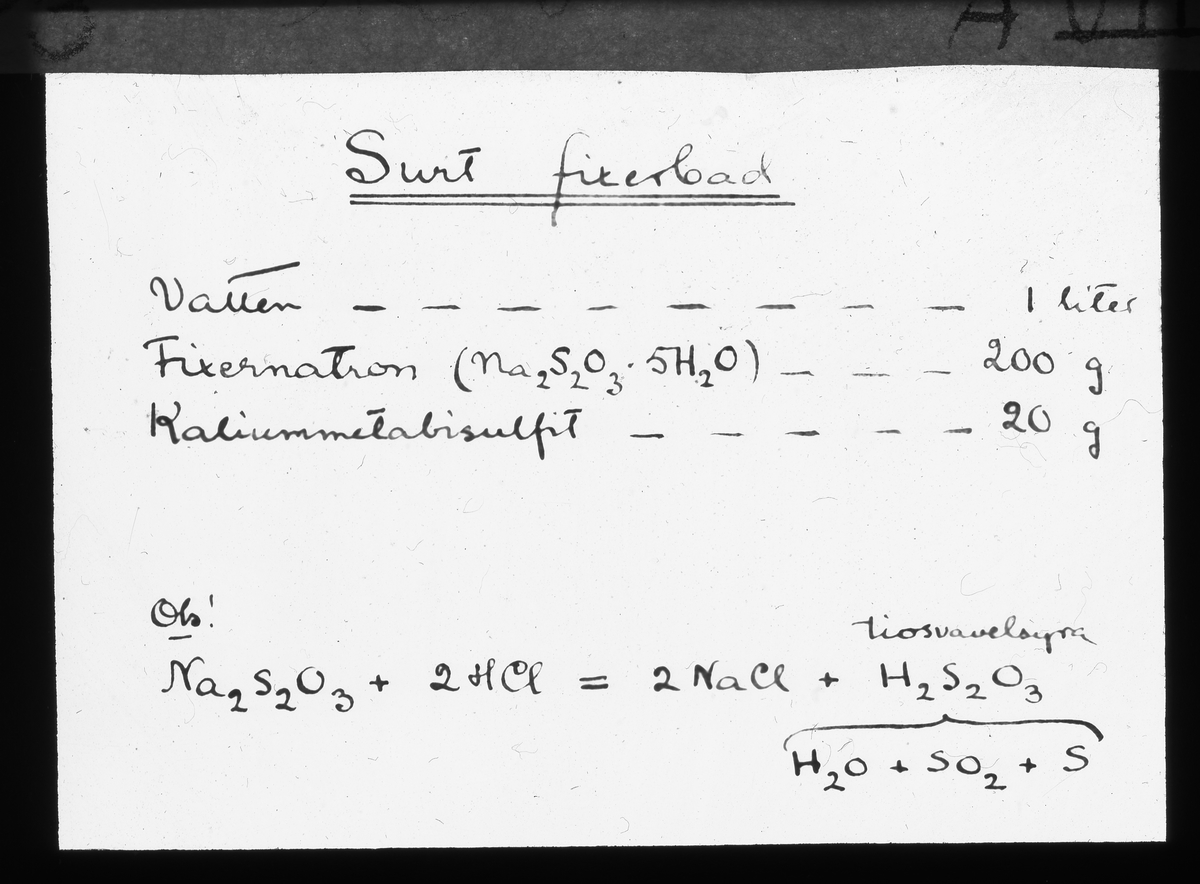 A VII
Surt fixerbad
Vatten — — — — — — — — 1 liter
Fixernatron (Na₂S₂O₃·5H₂O) — — — 200 g
Kaliummetabisulfit — — — — — 20 g
Obs!
tiosvavelsyra
Na₂S₂O₃ + 2HCl = 2NaCl + H₂S₂O₃
H₂O + SO₂ + S